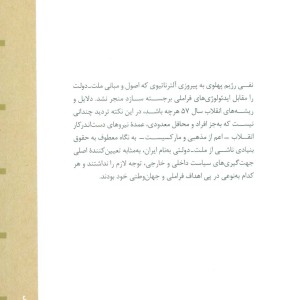 نفی رژیم پهلوی به پیروزی آلترناتیوی که اصول و مبانی ملت‌ـ‌دولت
را مقابل ایدئولوژی‌های فراملی برجسته سازد منجر نشد. دلایل و
ریشه‌های انقلاب سال ۵۷ هرچه باشد، در این نکته تردید چندانی
نیست که به‌جز افراد و محافل معدودی، عمدهٔ نیروهای دست‌اندرکار
انقلاب ـ اعم از مذهبی و مارکسیست ـ به نگاه معطوف به حقوق
بنیادی ناشی از ملت‌ـ‌دولتی به‌نام ایران، به‌مثابه تعیین‌کنندهٔ اصلی
جهت‌گیری‌های سیاست داخلی و خارجی، توجه لازم را نداشتند و هر
کدام به‌نوعی در پی اهداف فراملی و جهان‌وطنی خود بودند.